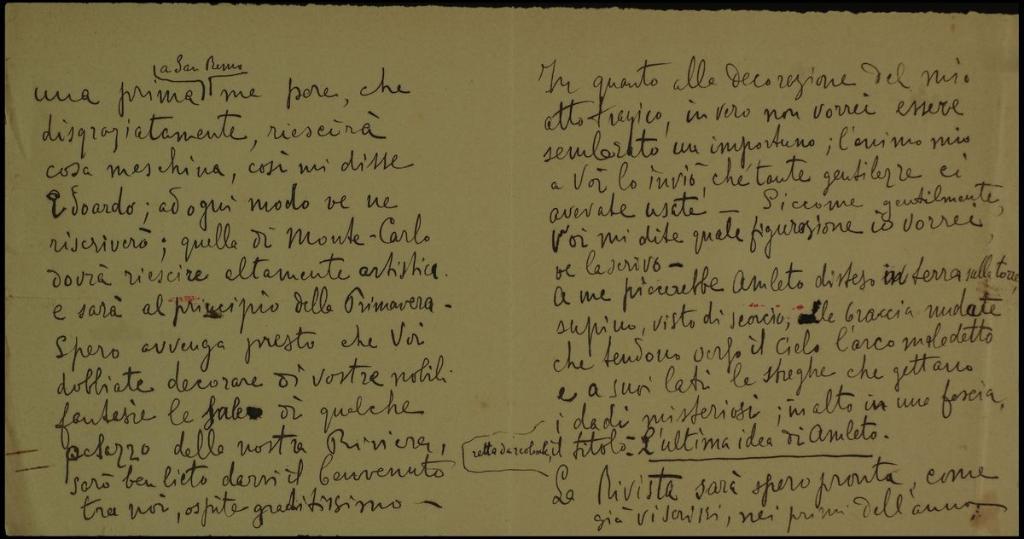 a San Remo
una prima me pare, che
disgraziatamente, riescirà
cosa meschina, così mi disse
Edoardo; ad ogni modo ve ne
riscriverò; quella di Monte-Carlo
dovrà riescire altamente artistica.
e sarà al principio della Primavera -
Spero avvenga presto che Voi
dobbiate decorare di vostre nobili
fantasie le sale di qualche
palazzo della nostra Riviera,
sarò ben lieto darvi il benvenuto
tra noi, ospite graditissimo -
In quanto alla decorazione del mio
atto tragico, in vero non vorrei essere
sembrato un importuno; l'animo mio
a Voi lo inviò, chè tante gentilezze ci
avevate usate - Siccome gentilmente,
Voi mi dite quale figurazione io vorrei,
ve la scrivo -
A me piacerebbe Amleto disteso in terra sulla torre,
supino, visto di scorcio, le braccia nudate
che tendono verso il Cielo l'arco maledetto
e a suoi lati le streghe che gettano
i dadi misteriosi; in alto in una fascia,
retta da il titolo - L'ultima idea di Amleto.
La Rivista sarà spero pronta, come
già vi scrissi, nei primi dell'anno;